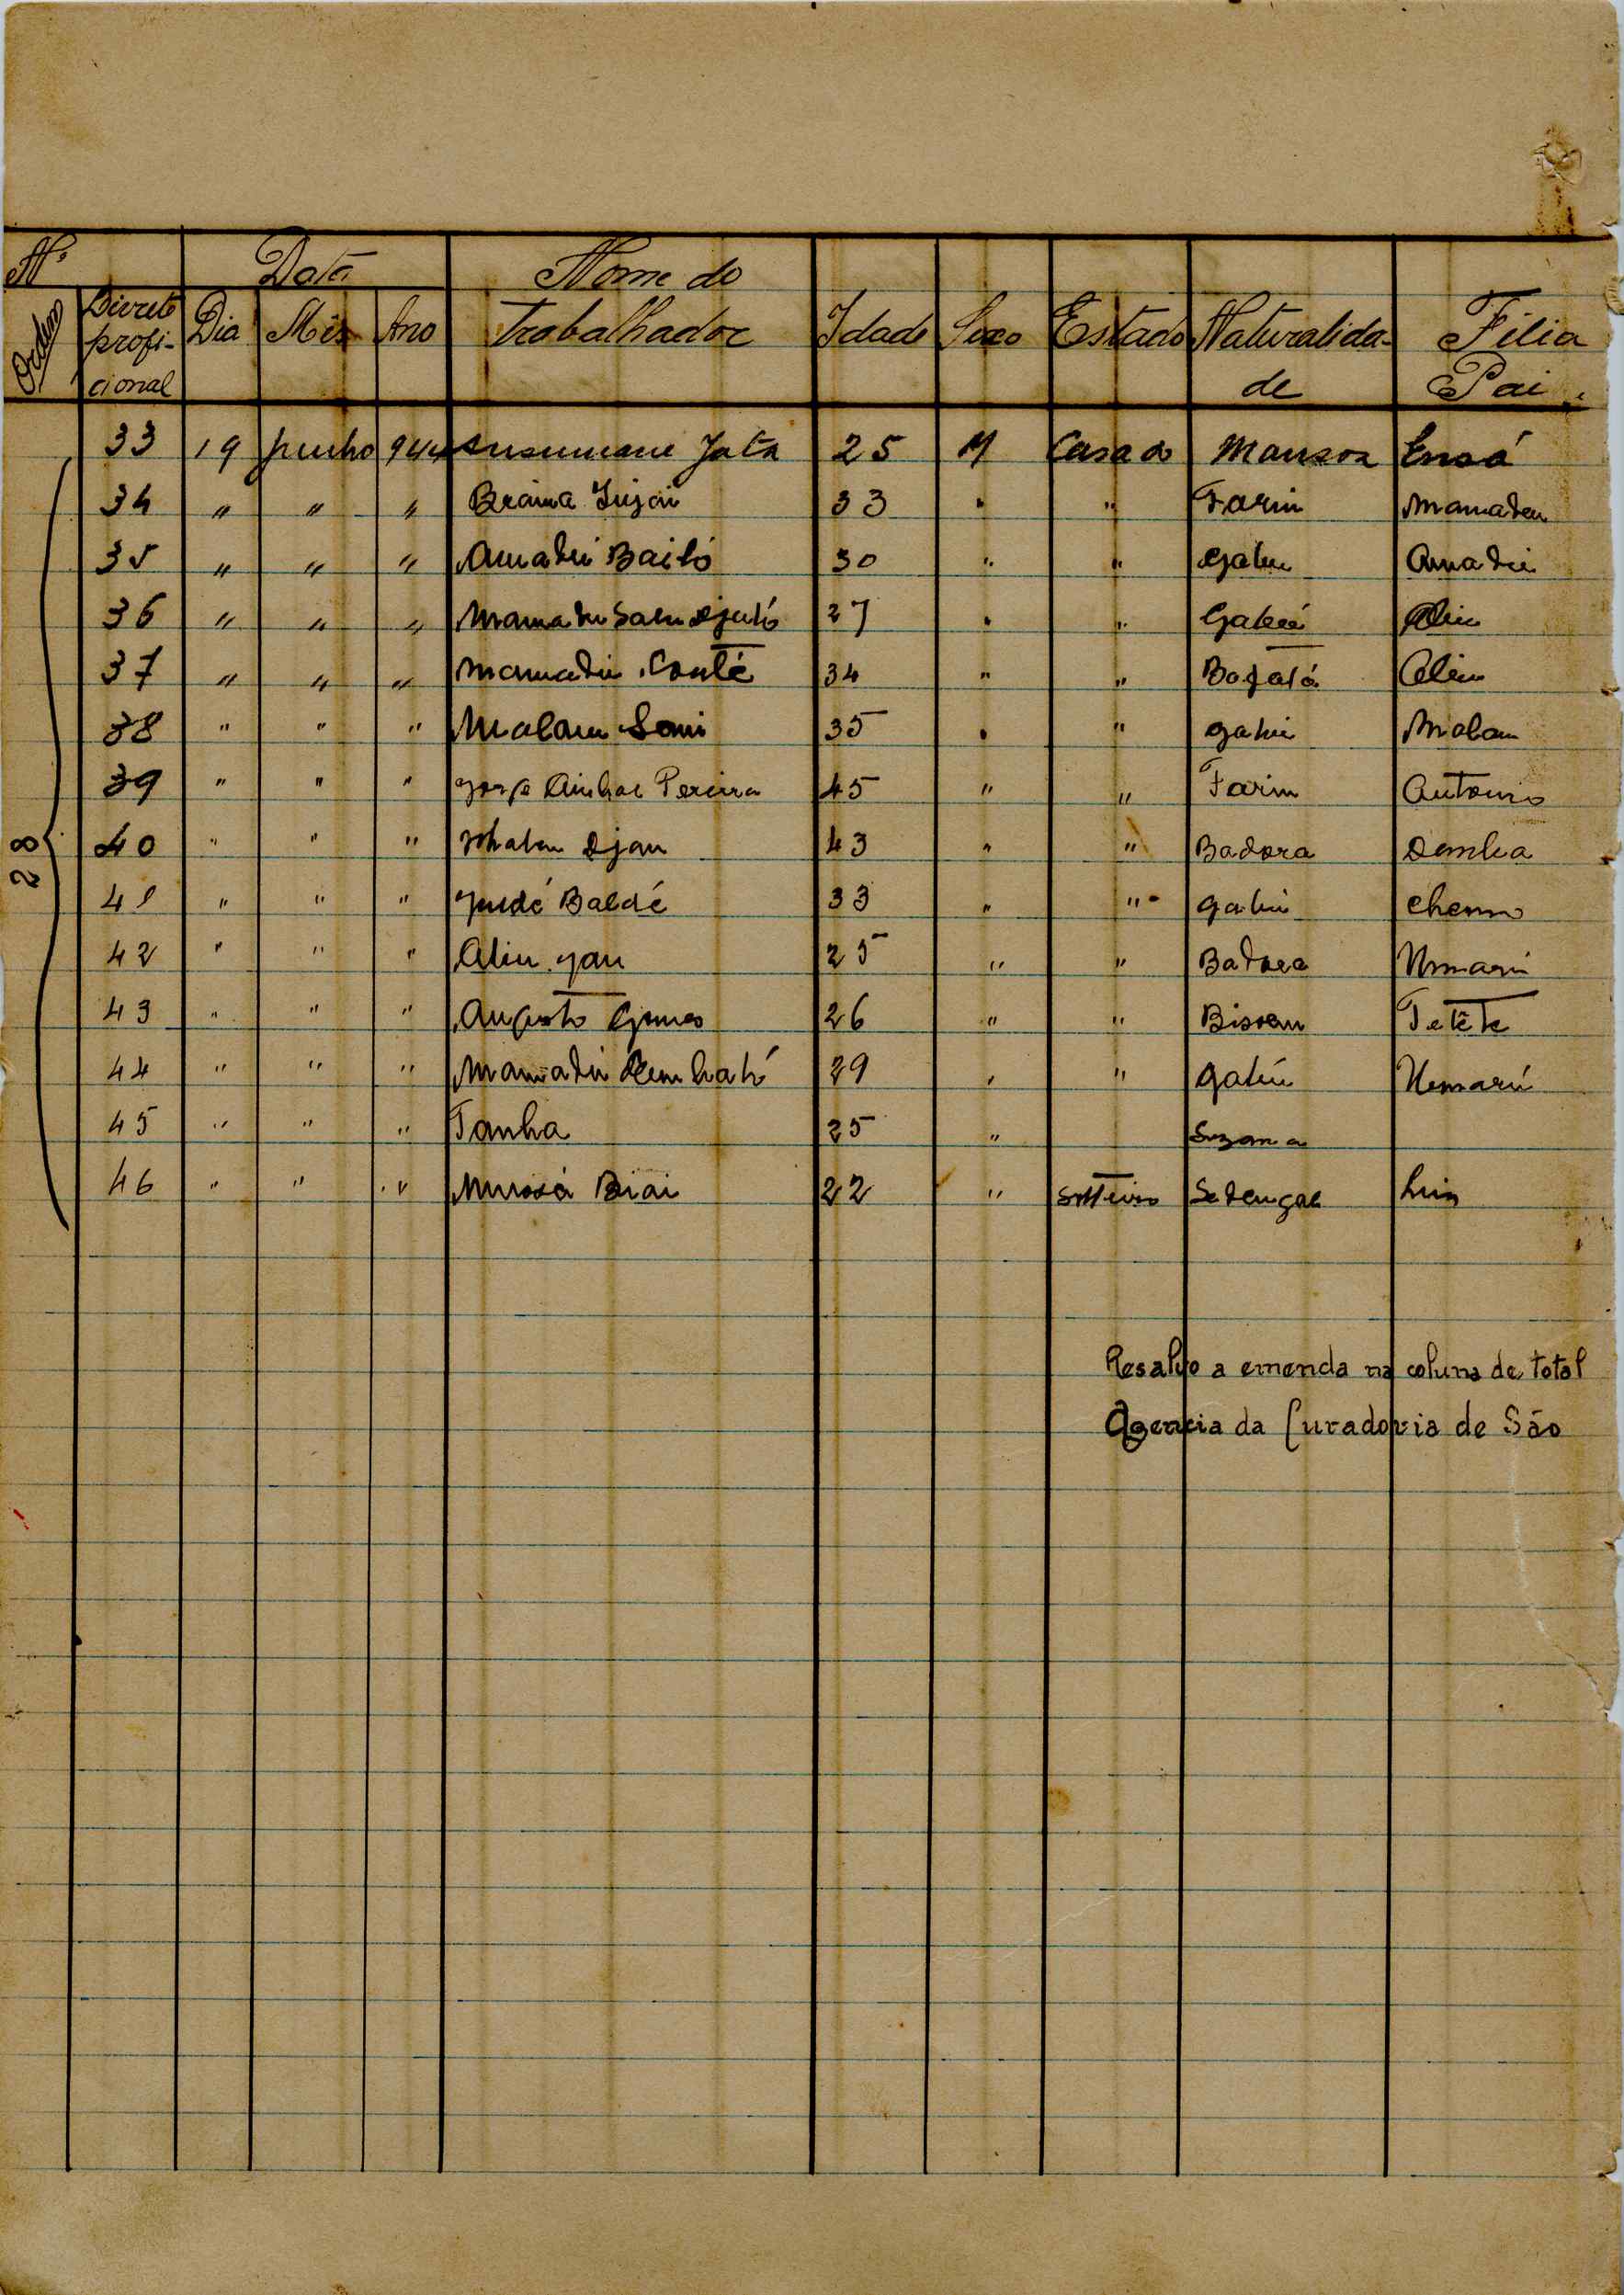 Nº Data Nome do
Ordem Livrete Dia Mês Ano Trabalhador Idade Sexo Estado Naturalida- Filia
profi-
cional de Pai
33 19 Junho 944 Ansumane Jata 25 M Casado Mansoa Ensá
34 " " " Braima Injai 33 " " Farim Mamadu
35 " " " Amadú Bailó 30 " " Gabu Amadú
36 " " " Mamadu Saliu Djaló 27 " " Gabú Aliu
37 " " " Mamadú Conté 34 " " Bafatá Aliu
38 " " " Malam Sani 35 " " Gabú Malam
39 " " " Pereira 45 " " Farim Antonio
40 " " " Djau 43 " " Badora Demba
41 " " " Baldé 33 " " Gabú Cherno
42 " " " Aliu Jau 25 " " Badora Umarú
43 " " " Augusto Gomes 26 " " Bissau Tetête
44 " " " Mamadú Dembaló 29 " " Gabú Umarú
45 " " " Tamba 25 " Suzana
46 " " " Mussá Biai 22 " Solteiro Sedengal Luis
28
Resalvo a emenda na coluna de total
Agencia da Curadoria de São